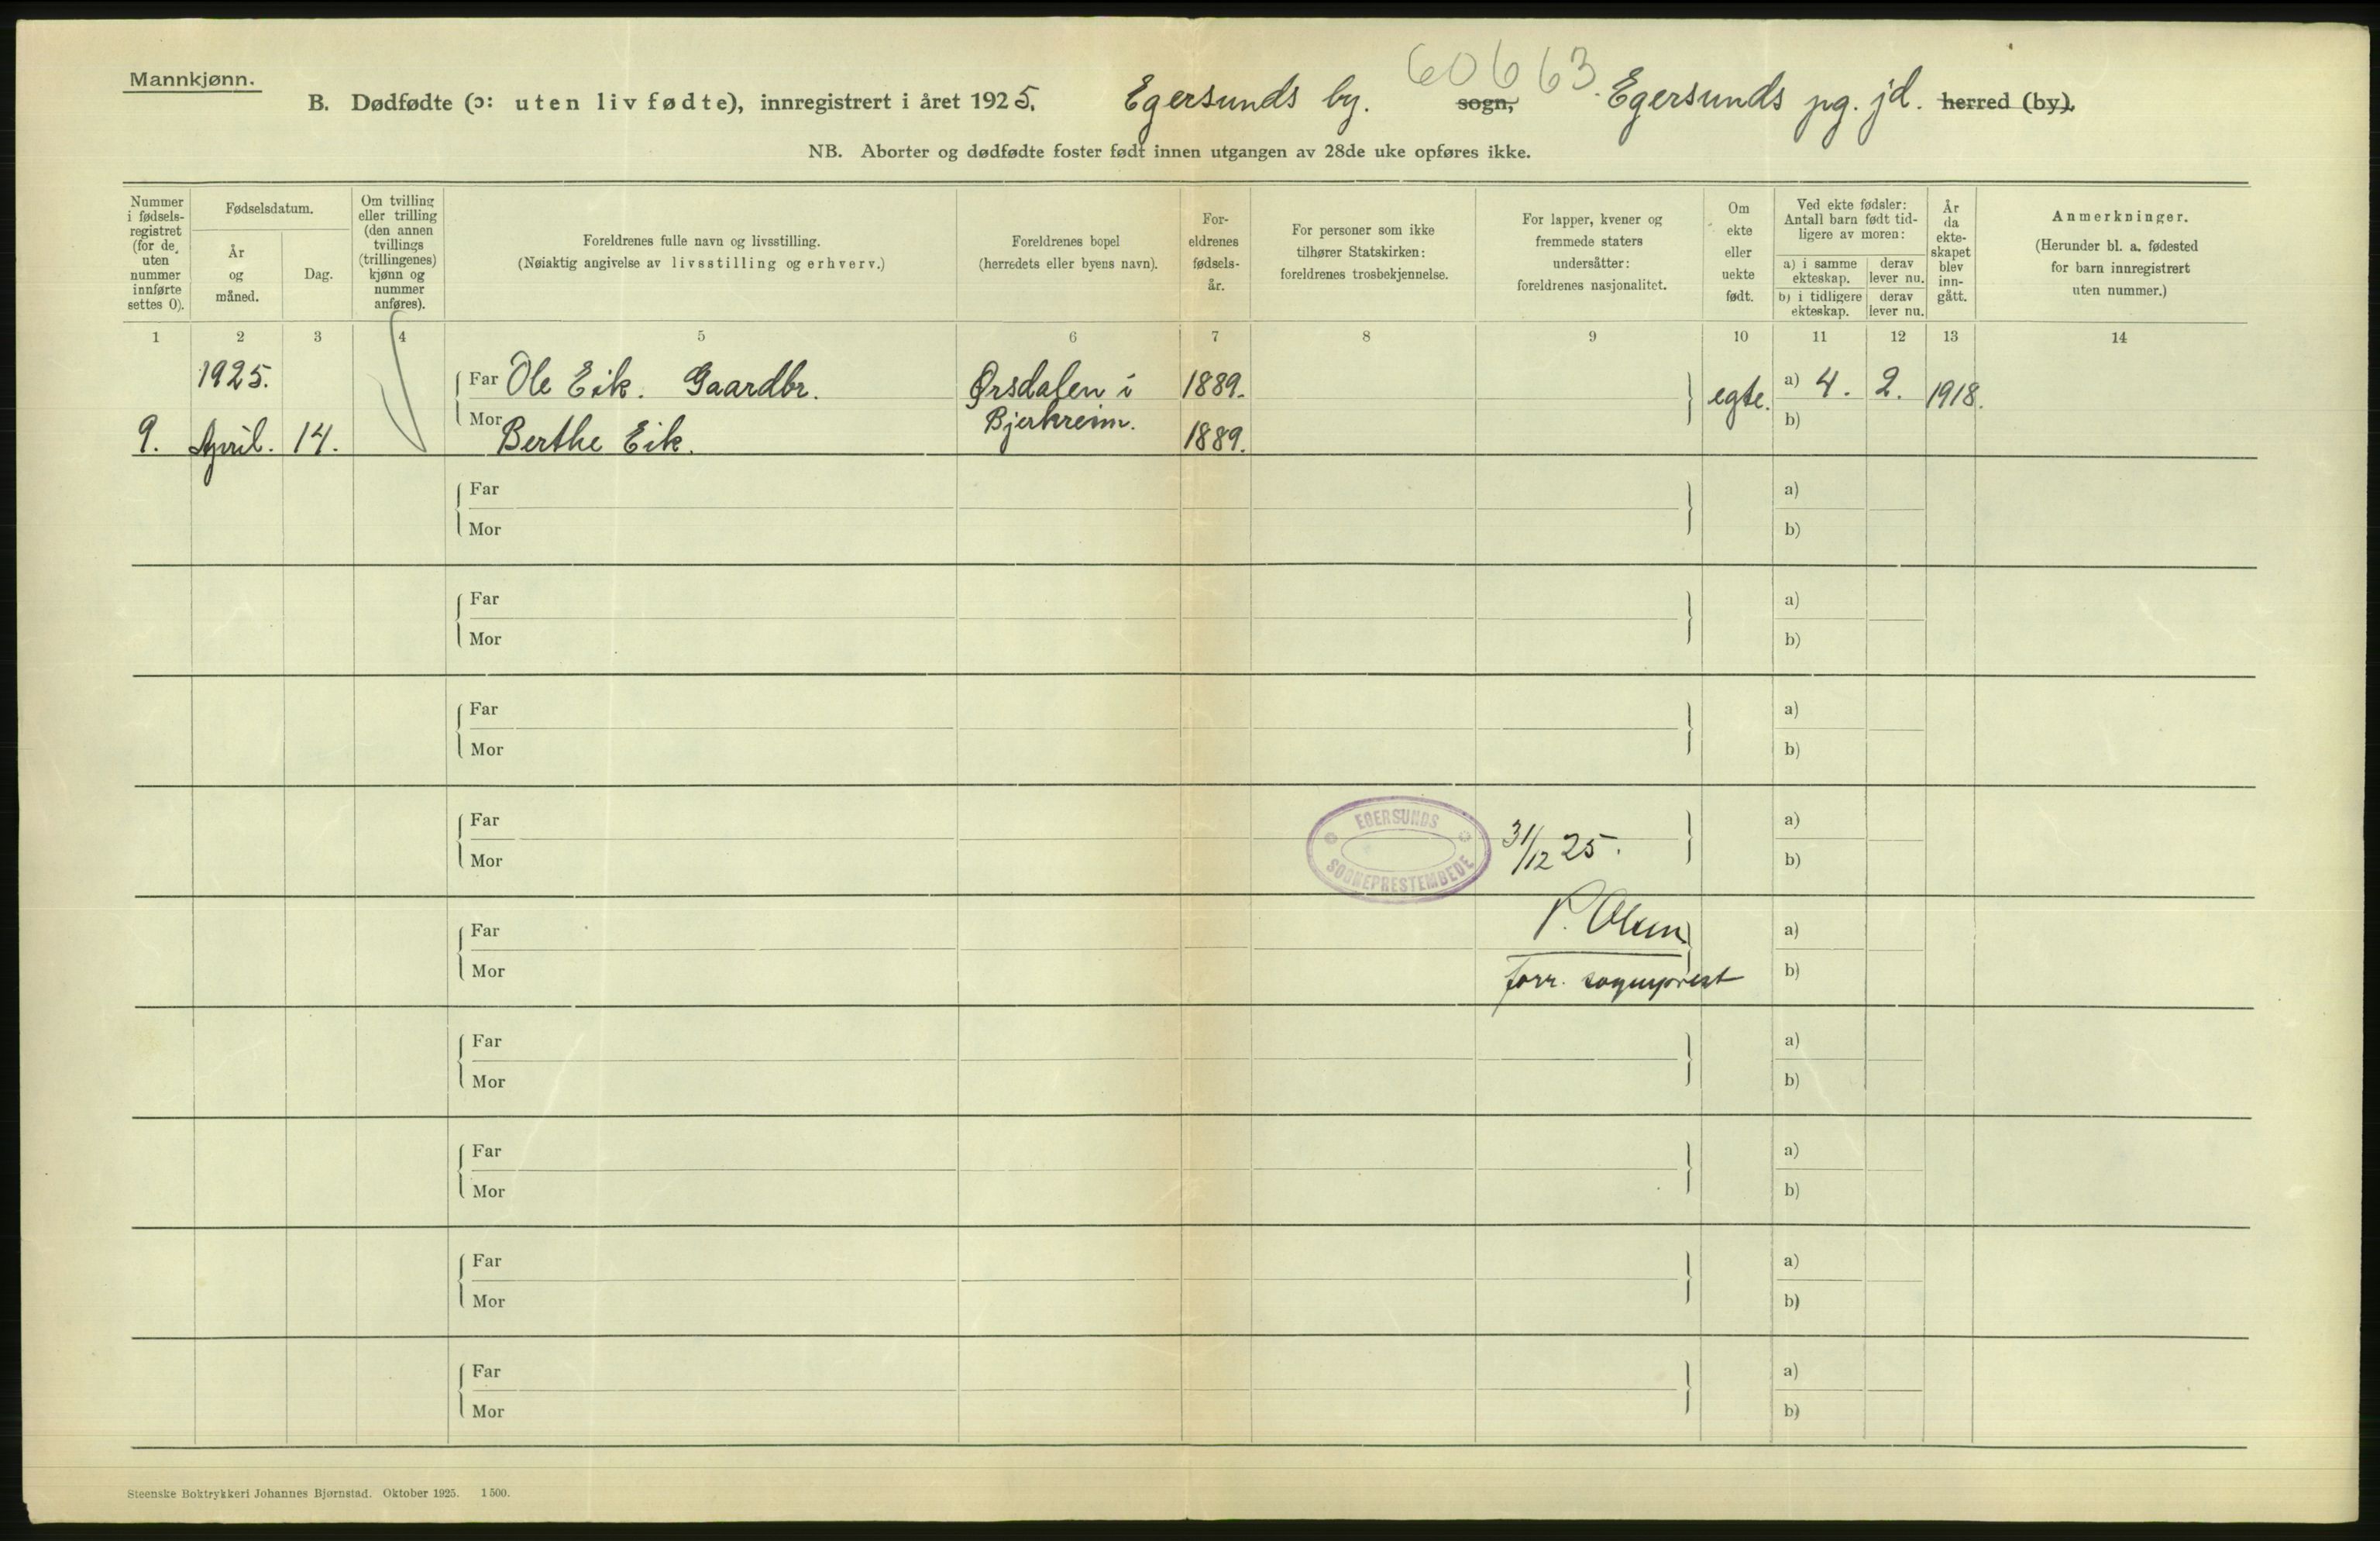 Mannkjønn.
60663
B. Dødfødte (ɔ: uten liv fødte), innregistrert i året 1925. Egersunds by. sogn, Egersunds pg. jd. herred (by).
NB. Aborter og dødfødte foster født innen utgangen av 28de uke opføres ikke.
Nummer i fødsels-registret (for de uten nummer innførte settes 0).
Fødselsdatum.
År og måned.
Dag.
Om tvilling eller trilling (den annen tvillings (trillingenes) kjønn og nummer anføres).
Foreldrenes fulle navn og livsstilling.
(Nøiaktig angivelse av livsstilling og erhverv.)
Foreldrenes bopel
(herredets eller byens navn).
For-eldrenes fødsels-år.
For personer som ikke tilhører Statskirken: foreldrenes trosbekjennelse.
For lapper, kvener og fremmede staters undersåtter: foreldrenes nasjonalitet.
Om ekte eller uekte født.
Ved ekte fødsler: Antall barn født tid-ligere av moren:
a) i samme ekteskap.
derav lever nu.
b) i tidligere ekteskap.
derav lever nu.
År da ekte-skapet blev inn-gått.
Anmerkninger.
(Herunder bl. a. fødested for barn innregistrert uten nummer.)
1 2 3 4 5 6 7 8 9 10 11 12 13 14
1925. Far Ole Eik. Gaardbr. Ørsdalen i 1889. egte. a) 4. 2. 1918.
9. April. 14. Mor Berthe Eik. Bjerkreim. 1889. b)
Far a)
Mor b)
Far a)
Mor b)
Far a)
Mor b)
Far EGERSUNDS SOGNEPRESTEMBEDE 31/12 25. a)
Mor b)
Far P. Olsen a)
Mor forr. sogneprest b)
Far a)
Mor b)
Far a)
Mor b)
Far a)
Mor b)
Far a)
Mor b)
Steenske Boktrykkeri Johannes Bjørnstad. Oktober 1925. 1500.